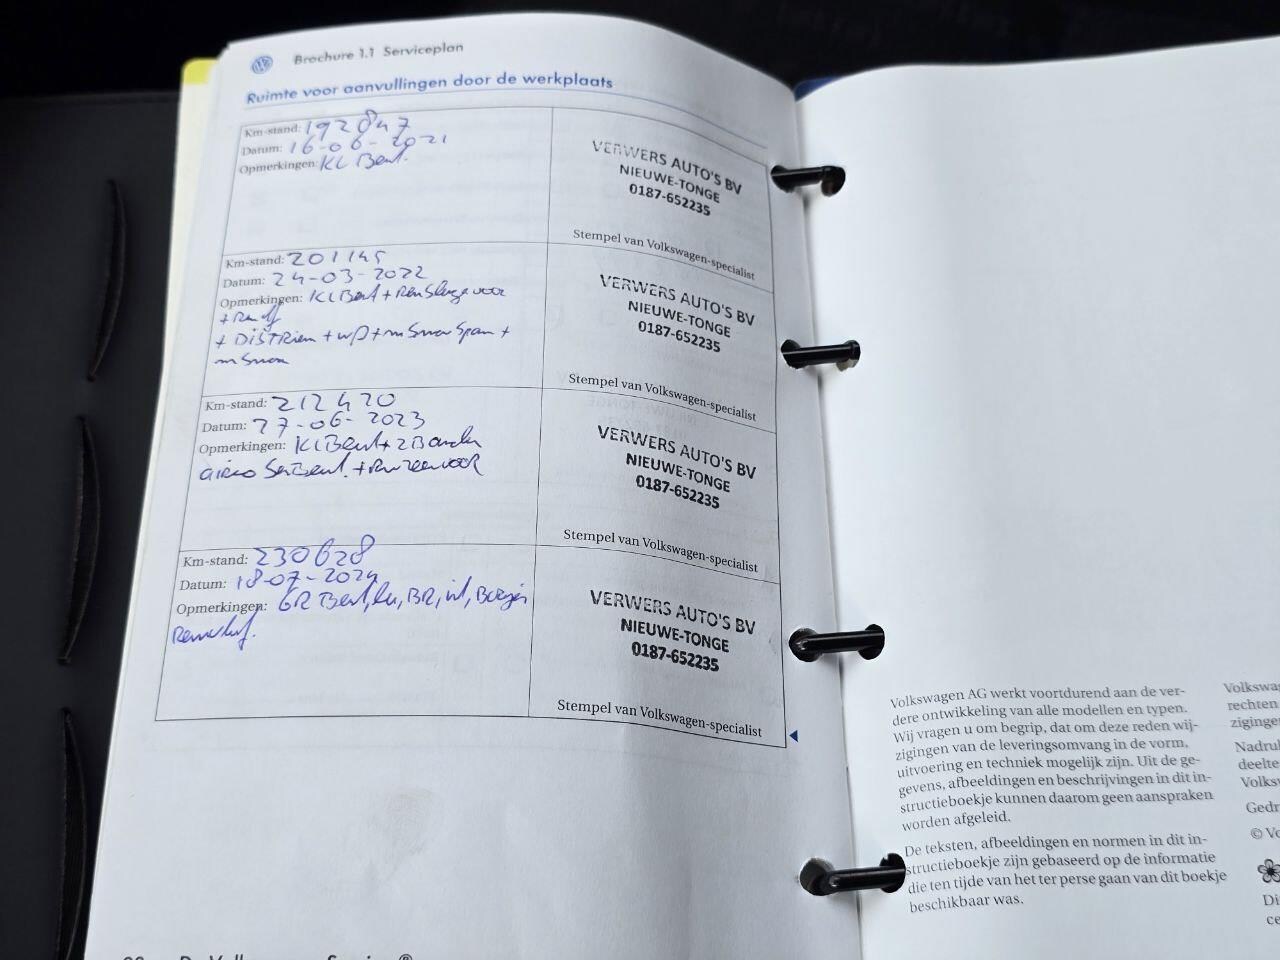 Brochure 1.1 Serviceplan
Ruimte voor aanvullingen door de werkplaats
Km-stand: 192847
Datum: 16-06-2021
Opmerkingen: KL Beurt.
VERWERS AUTO'S BV
NIEUWE-TONGE
0187-652235
Stempel van Volkswagen-specialist
Km-stand: 201145
Datum: 24-03-2022
Opmerkingen: KL Beurt + voor
+
+ DiSTRiem + wp + +
VERWERS AUTO'S BV
NIEUWE-TONGE
0187-652235
Stempel van Volkswagen-specialist
Km-stand: 212420
Datum: 27-06-2023
Opmerkingen: KL Beurt + 2 Banden
airco Beurt. + voor
VERWERS AUTO'S BV
NIEUWE-TONGE
0187-652235
Stempel van Volkswagen-specialist
Km-stand: 230628
Datum: 18-07-2024
Opmerkingen: GR Beurt, BR,
VERWERS AUTO'S BV
NIEUWE-TONGE
0187-652235
Stempel van Volkswagen-specialist
Volkswagen AG werkt voortdurend aan de ver-
dere ontwikkeling van alle modellen en typen.
Wij vragen u om begrip, dat om deze reden wij-
zigingen van de leveringsomvang in de vorm,
uitvoering en techniek mogelijk zijn. Uit de ge-
gevens, afbeeldingen en beschrijvingen in dit in-
structieboekje kunnen daarom geen aanspraken
worden afgeleid.
De teksten, afbeeldingen en normen in dit in-
structieboekje zijn gebaseerd op de informatie
die ten tijde van het ter perse gaan van dit boekje
beschikbaar was.
Volkswa
rechten
ziginge
Nadru
deelte
Volks
Gedr
© Vo
Di
ce